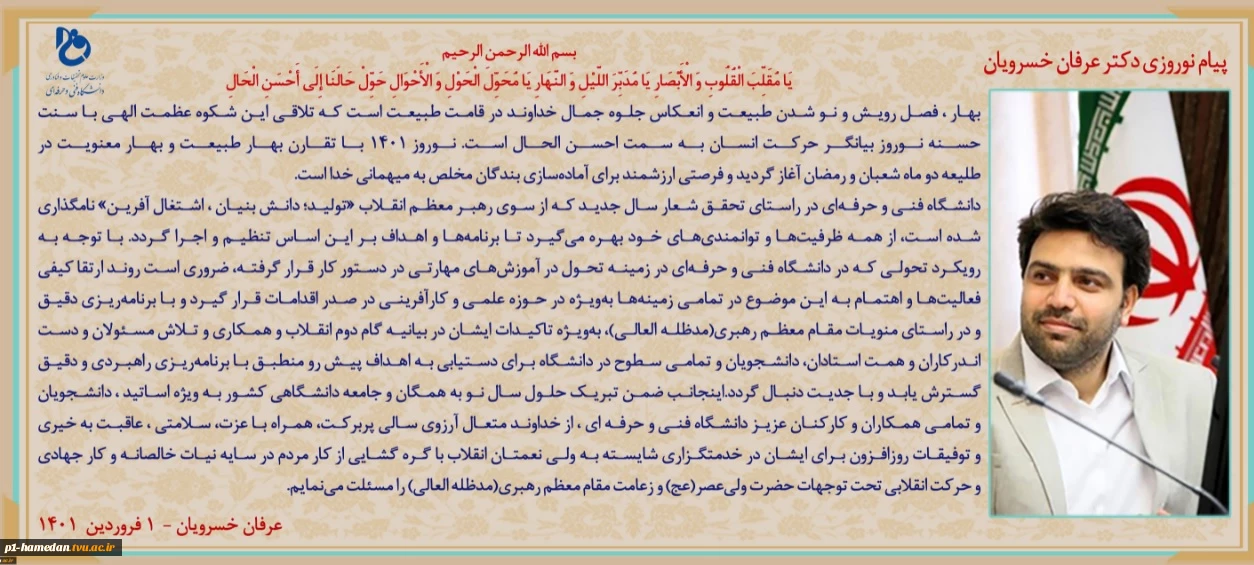 بسم الله الرحمن الرحیم
پیام نوروزی دکتر عرفان خسرویان
یَا مُقَلِّبَ الْقُلُوبِ وَ الْأَبْصَارِ یَا مُدَبِّرَ اللَّیْلِ وَ النَّهَارِ یَا مُحَوِّلَ الْحَوْلِ وَ الْأَحْوَالِ حَوِّلْ حَالَنَا إِلَی أَحْسَنِ الْحَالِ
وزارت علوم تحقیقات و فناوری
دانشگاه فنی و حرفه‌ای
بهار ، فصل رویش و نو شدن طبیعت و انعکاس جلوه جمال خداوند در قامت طبیعت است که تلاقی این شکوه عظمت الهی با سنت
حسنه نوروز بیانگر حرکت انسان به سمت احسن الحال است. نوروز ۱۴۰۱ با تقارن بهار طبیعت و بهار معنویت در
طلیعه دو ماه شعبان و رمضان آغاز گردید و فرصتی ارزشمند برای آماده‌سازی بندگان مخلص به میهمانی خدا است.
دانشگاه فنی و حرفه‌ای در راستای تحقق شعار سال جدید که از سوی رهبر معظم انقلاب «تولید؛ دانش بنیان ، اشتغال آفرین» نامگذاری
شده است، از همه ظرفیت‌ها و توانمندی‌های خود بهره می‌گیرد تا برنامه‌ها و اهداف بر این اساس تنظیم و اجرا گردد. با توجه به
رویکرد تحولی که در دانشگاه فنی و حرفه‌ای در زمینه تحول در آموزش‌های مهارتی در دستور کار قرار گرفته، ضروری است روند ارتقا کیفی
فعالیت‌ها و اهتمام به این موضوع در تمامی زمینه‌ها به‌ویژه در حوزه علمی و کارآفرینی در صدر اقدامات قرار گیرد و با برنامه‌ریزی دقیق
و در راستای منویات مقام معظم رهبری(مدظله العالی)، به‌ویژه تاکیدات ایشان در بیانیه گام دوم انقلاب و همکاری و تلاش مسئولان و دست
اندرکاران و همت استادان، دانشجویان و تمامی سطوح در دانشگاه برای دستیابی به اهداف پیش رو منطبق با برنامه‌ریزی راهبردی و دقیق
گسترش یابد و با جدیت دنبال گردد.اینجانب ضمن تبریک حلول سال نو به همگان و جامعه دانشگاهی کشور به ویژه اساتید ، دانشجویان
و تمامی همکاران و کارکنان عزیز دانشگاه فنی و حرفه ای ، از خداوند متعال آرزوی سالی پربرکت، همراه با عزت، سلامتی ، عاقبت به خیری
و توفیقات روزافزون برای ایشان در خدمتگزاری شایسته به ولی نعمتان انقلاب با گره گشایی از کار مردم در سایه نیات خالصانه و کار جهادی
و حرکت انقلابی تحت توجهات حضرت ولی‌عصر(عج) و زعامت مقام معظم رهبری(مدظله العالی) را مسئلت می‌نمایم.
عرفان خسرویان - ۱ فروردین ۱۴۰۱
p1-hamedan.tvu.ac.ir